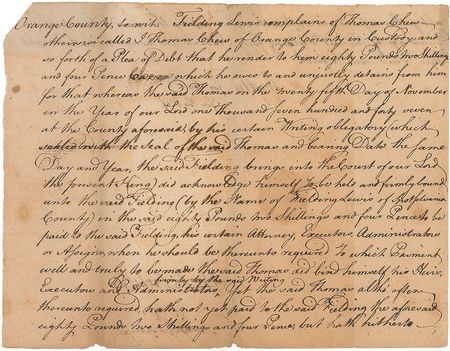 Orange County, to wit. Fielding Lewis complains of Thomas Chew
otherwise called I Thomas Chew of Orange County in Custody and
so forth of a Plea of Debt that he render to him eighty Pounds two Shillings
and four Pence which he owes to and unjustly detains from him
for that whereas the said Thomas on the twenty fifth Day of November
in the Year of our Lord one thousand seven hundred and forty seven
at the County aforesaid, by his certain Writing obligatory (which
sealed with the Seal of the said Thomas and bearing Date the same
Day and Year, the said Fielding brings into the Court of our Lord
the present King) did acknowledge himself to be held and firmly bound
unto the said Fielding (by the Name of Fielding Lewis of Spotsylvania
County) in the said eighty Pounds two Shillings and four Pence to be
paid to the said Fielding, his certain Attorney, Executors, Administrators
or Assigns, when he should be thereunto required to which Payment
well and truly to be made the said Thomas did bind himself his Heirs,
Executors and Administrators, firmly by the said Writing yet the said Thomas altho often
thereunto required hath not yet paid to the said Fielding the aforesaid
eighty Pounds two Shillings and four Pence, but hath hitherto